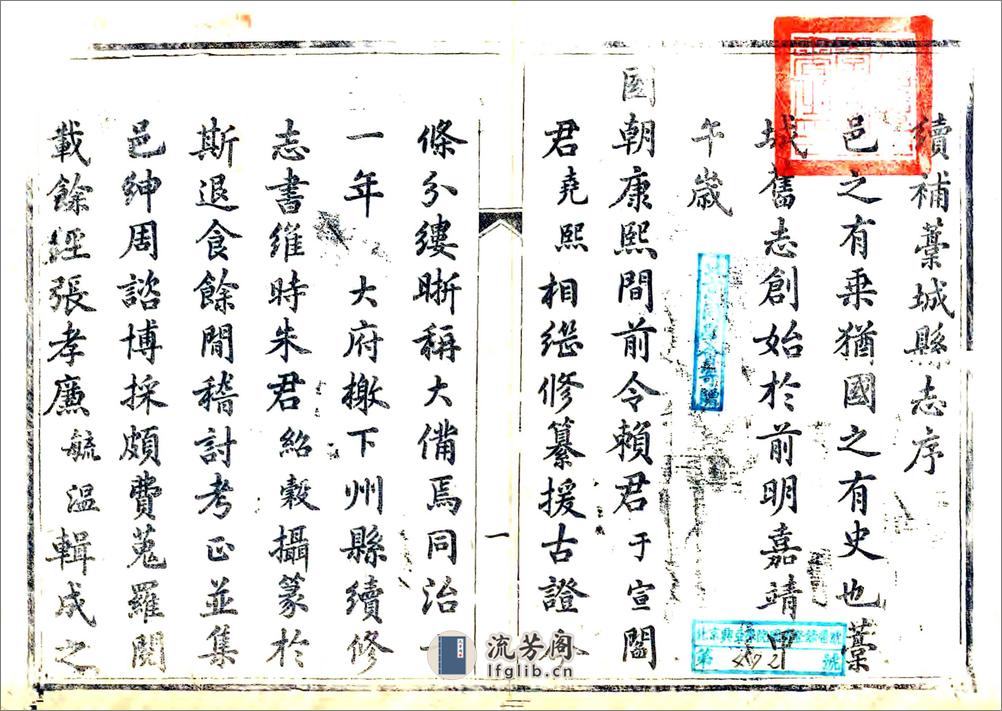 續補藁城縣志序
邑之有乗猶國之有史也藁
城舊志創始於前明嘉靖甲
午歲
國朝康熙間前令賴君于宣閻
君堯熙相繼修纂援古證今
條分縷晰稱大備焉同治十
一年大府檄下州縣續修
志書維時朱君紹穀攝篆於
斯退食餘閒稽討考正並集
邑紳周諮博採頗費蒐羅閱
載餘經張孝廉毓溫輯成之
一
第 號
流芳阁
lfglib.cn